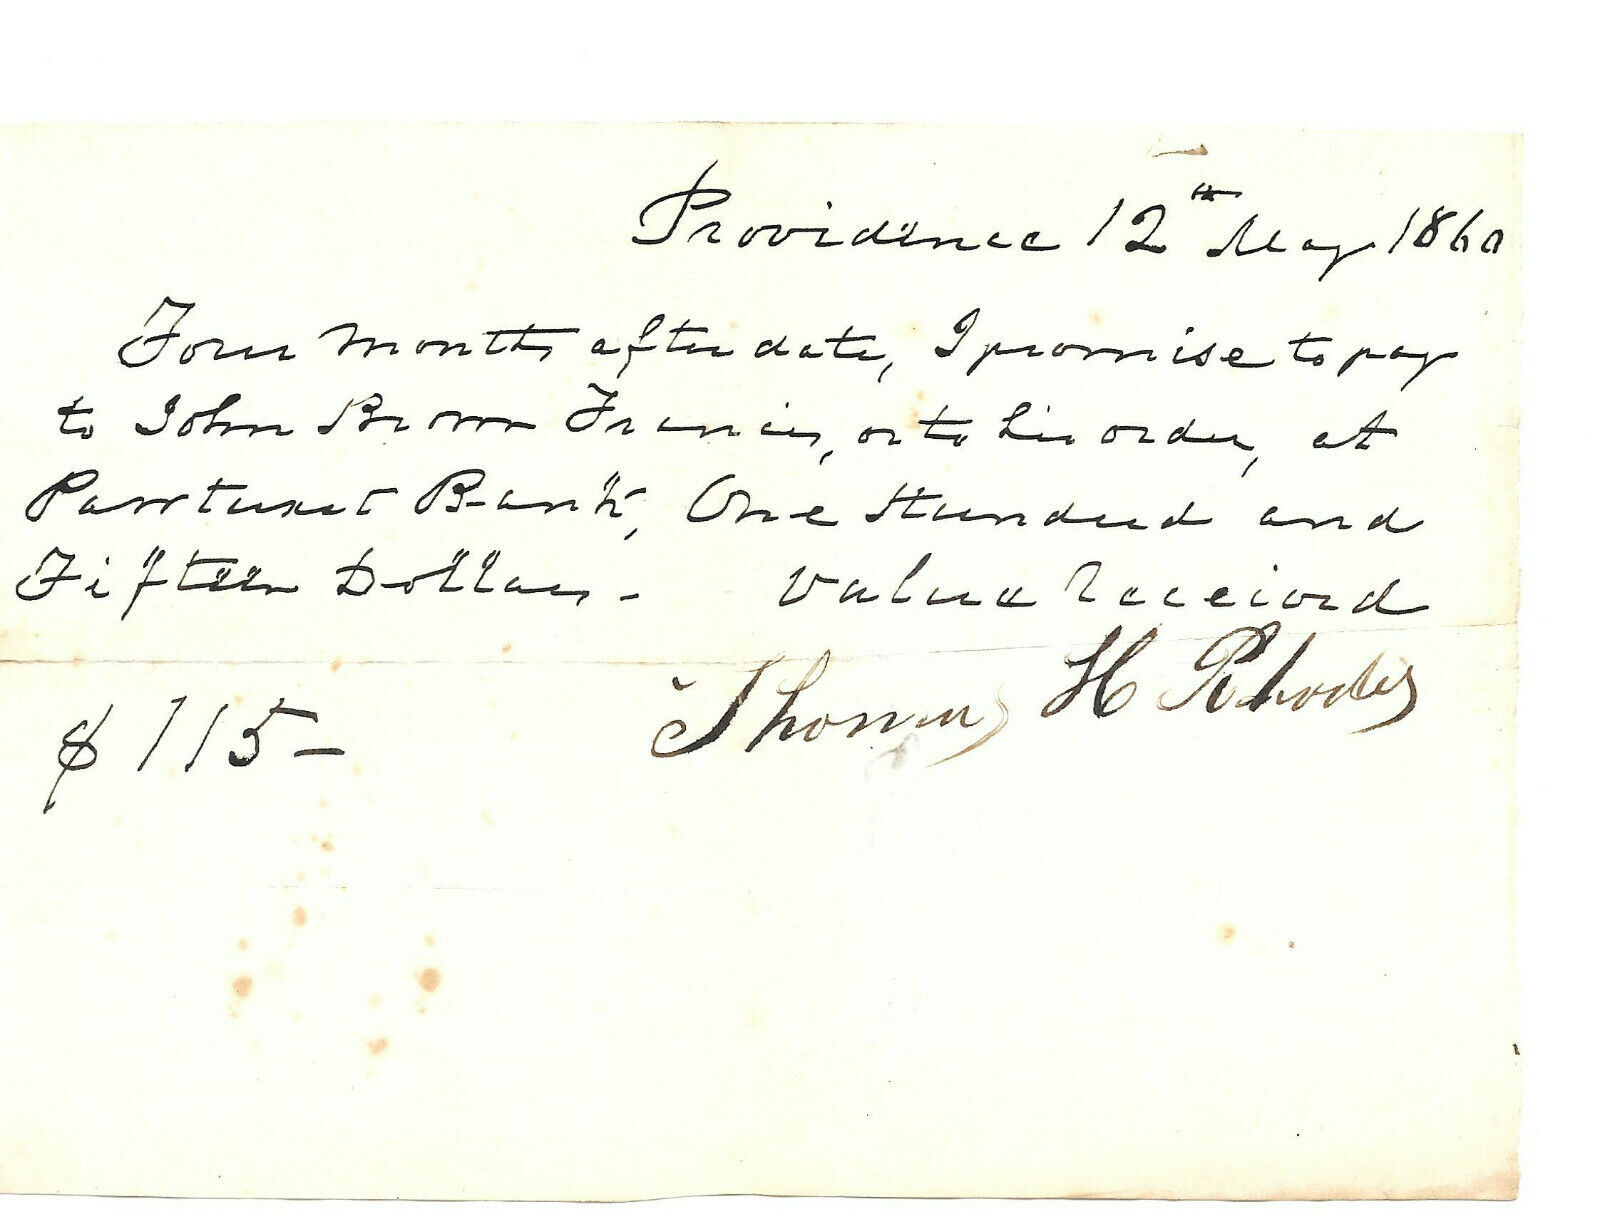 Providence 12th May 1860
Four months after date, I promise to pay
to John Brown Francis, or to his order, at
Pawtuxet Bank, One Hundred and
Fifteen Dollars - Value received
Thomas H Rhodes
$ 115 -